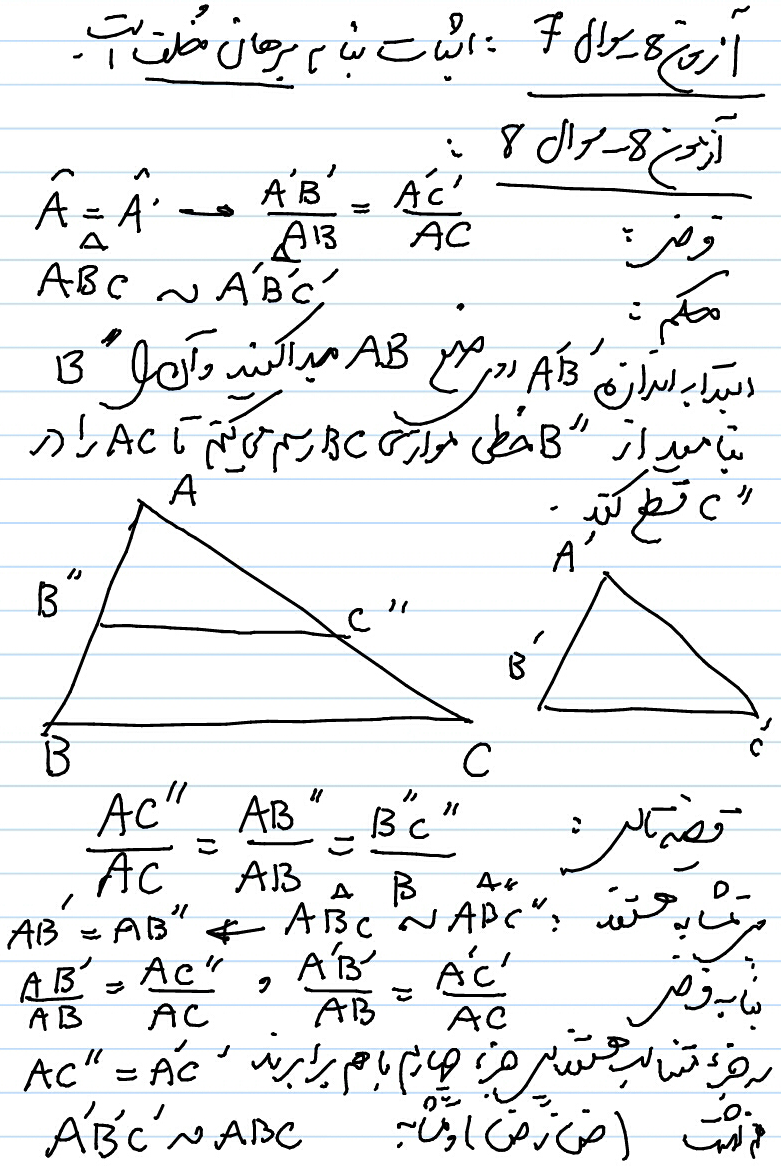 آزمون 8 - سوال 7 : اثبات بنام برهان خلف است.
آزمون 8 - سوال 8 :
فرض : Â = Â' → A'B'/AB = A'C'/AC
حکم : ABC ~ A'B'C'
ابتدا به اندازه A'B' در ضلع AB جدا کنید و آن را B"
بنامید از B" خطی موازی BC رسم می کنیم تا AC را در
C" قطع کند.
A
A'
B"
C"
B'
B
C
C'
قضیه تالس : AC"/AC = AB"/AB = B"C"/B
متشابه هستند : ABC ~ AB"C" ⇐ AB' = AB"
بنا به فرض AB'/AB = AC"/AC , A'B'/AB = A'C'/AC
سه جزء متناسب هستند پس جزء چهارم با هم برابرند AC" = A'C'
(ض ز ض) A'B'C' ~ ABC